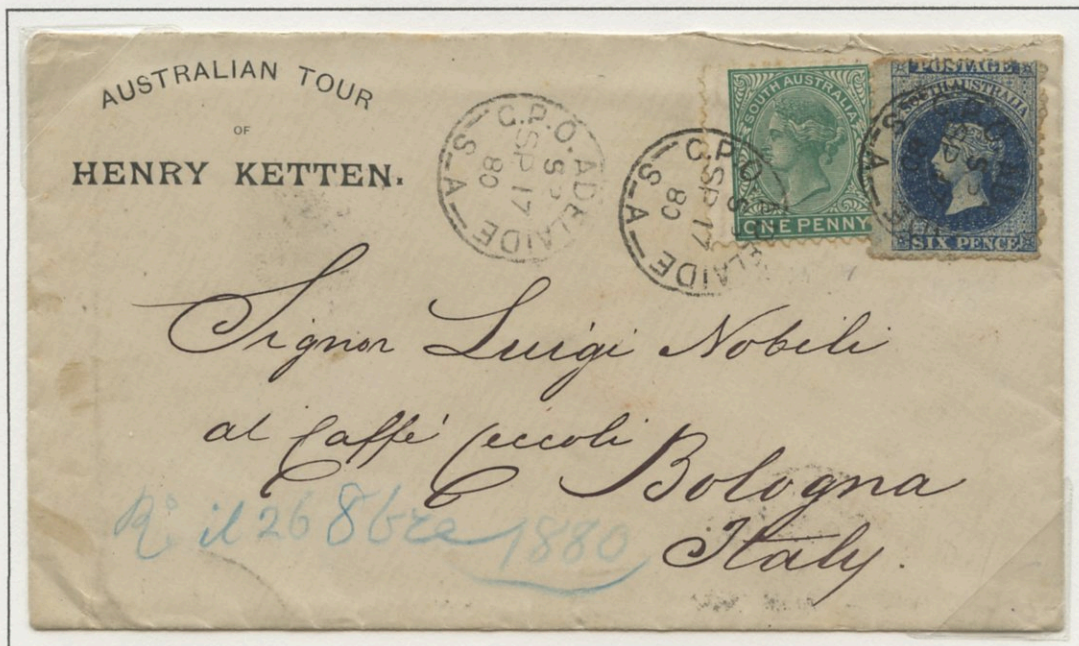 AUSTRALIAN TOUR
OF
HENRY KETTEN.
G.P.O. ADELAIDE S-A
S
SP 17
80
G.P.O. ADELAIDE S-A
S
SP 17
80
SOUTH AUSTRALIA
ONE PENNY
POSTAGE
SOUTH AUSTRALIA
SIX PENCE
Signor Luigi Nobili
al Caffé Ceccoli
Bologna
Italy.
R.º il 26 8bre 1880